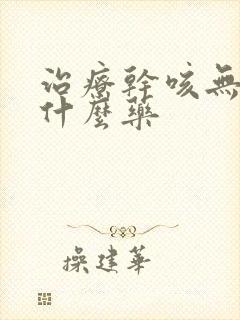 治療幹咳無
什麼藥
操建華